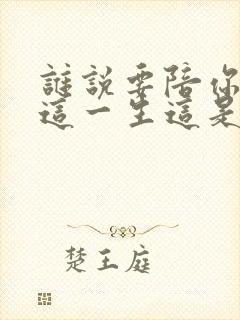 誰說要陪你
這一生這是
楚王庭